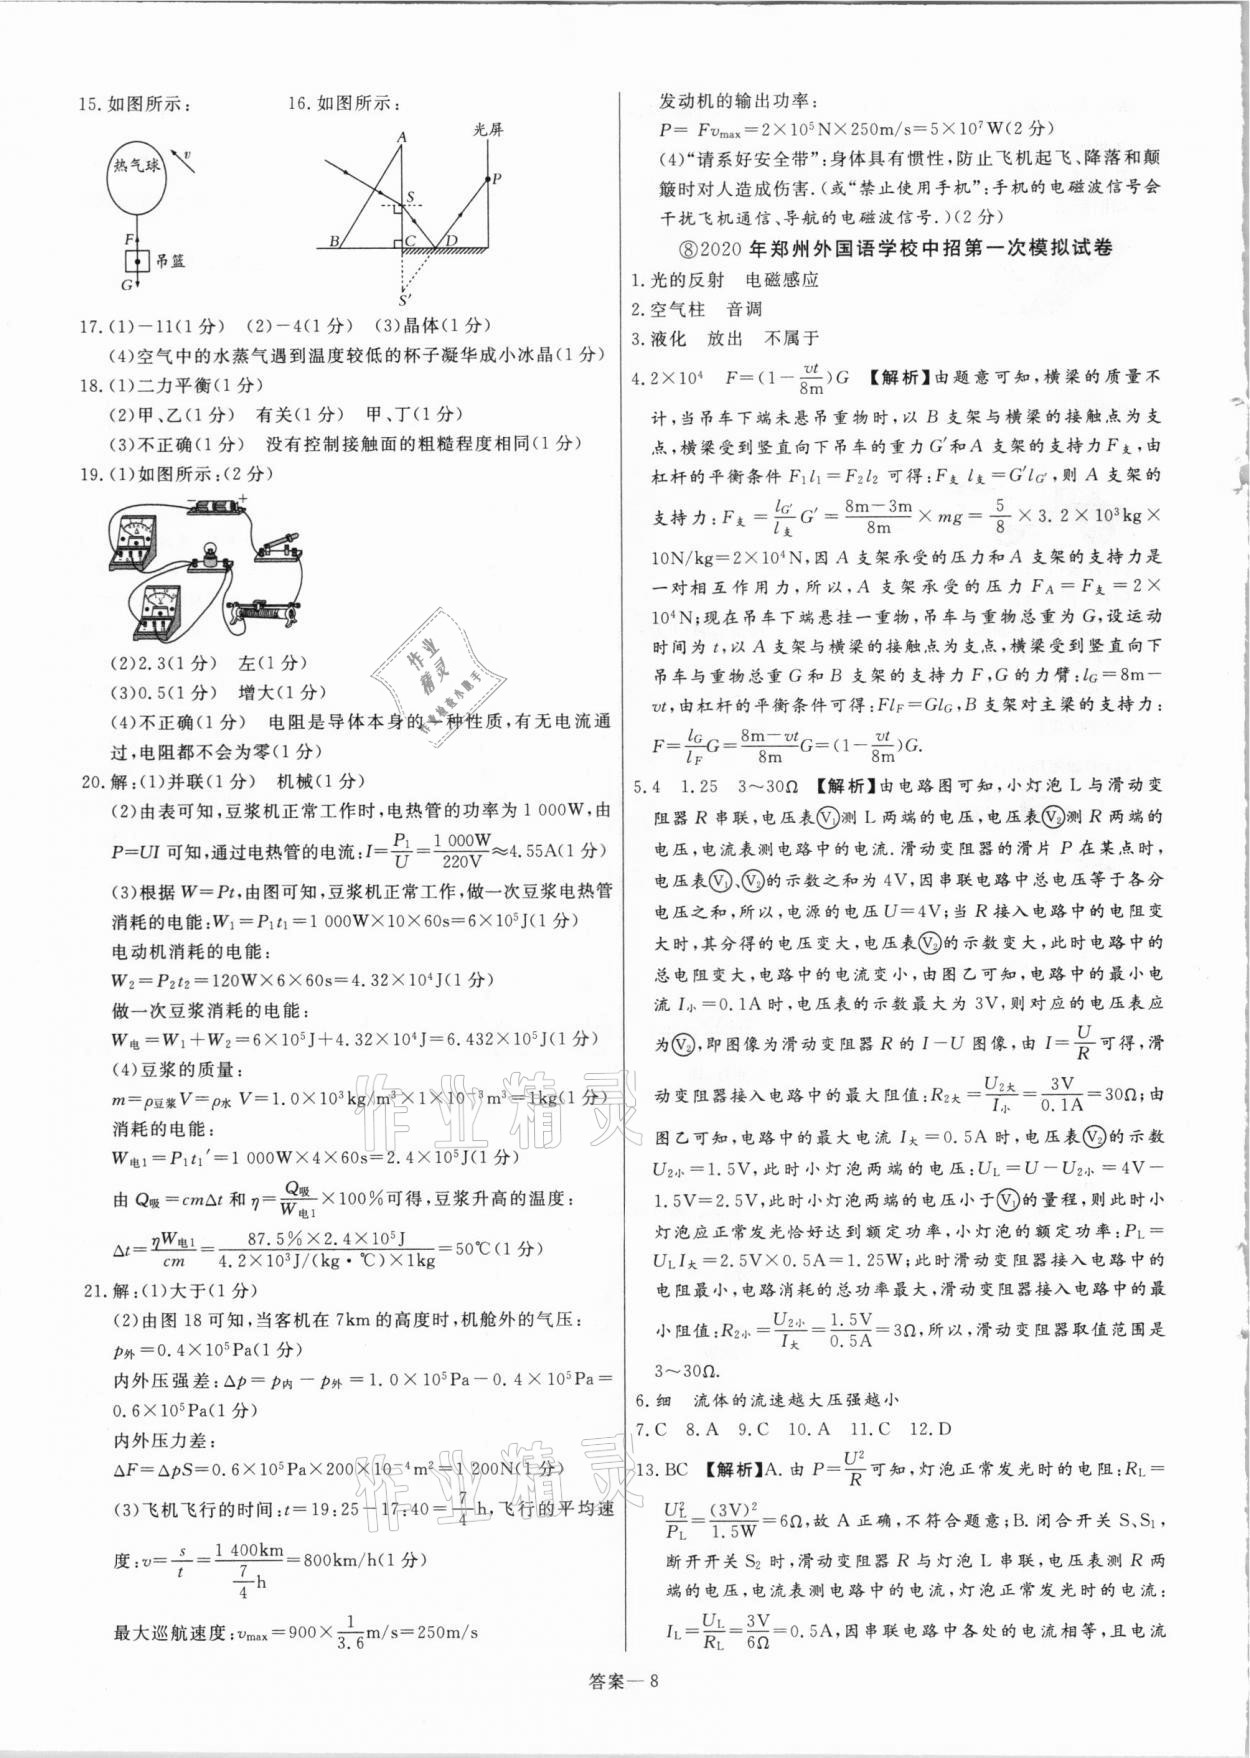 15.如图所示:
16.如图所示:
热气球
v
F
吊篮
G
A
光屏
P
S
B
C
D
S′
17.(1)-11(1分) (2)-4(1分) (3)晶体(1分)
(4)空气中的水蒸气遇到温度较低的杯子凝华成小冰晶(1分)
18.(1)二力平衡(1分)
(2)甲、乙(1分) 有关(1分) 甲、丁(1分)
(3)不正确(1分) 没有控制接触面的粗糙程度相同(1分)
19.(1)如图所示:(2分)
- +
(2)2.3(1分) 左(1分)
(3)0.5(1分) 增大(1分)
(4)不正确(1分) 电阻是导体本身的一种性质,有无电流通
过,电阻都不会为零(1分)
20.解:(1)并联(1分) 机械(1分)
(2)由表可知,豆浆机正常工作时,电热管的功率为1 000W,由
P=UI可知,通过电热管的电流:I=P₁/U=1 000W/220V≈4.55A(1分)
(3)根据W=Pt,由图可知,豆浆机正常工作,做一次豆浆电热管
消耗的电能:W₁=P₁t₁=1 000W×10×60s=6×10⁵J(1分)
电动机消耗的电能:
W₂=P₂t₂=120W×6×60s=4.32×10⁴J(1分)
做一次豆浆消耗的电能:
W电=W₁+W₂=6×10⁵J+4.32×10⁴J=6.432×10⁵J(1分)
(4)豆浆的质量:
m=ρ豆浆V=ρ水 V=1.0×10³kg/m³×1×10⁻³m³=1kg(1分)
消耗的电能:
W电1=P₁t₁′=1 000W×4×60s=2.4×10⁵J(1分)
由Q吸=cmΔt和η=Q吸/W电1×100%可得,豆浆升高的温度:
Δt=ηW电1/cm=87.5%×2.4×10⁵J/4.2×10³J/(kg·℃)×1kg=50℃(1分)
21.解:(1)大于(1分)
(2)由图18可知,当客机在7km的高度时,机舱外的气压:
p外=0.4×10⁵Pa(1分)
内外压强差:Δp=p内-p外=1.0×10⁵Pa-0.4×10⁵Pa=
0.6×10⁵Pa(1分)
内外压力差:
ΔF=ΔpS=0.6×10⁵Pa×200×10⁻⁴m²=1 200N(1分)
(3)飞机飞行的时间:t=19:25-17:40=7/4h,飞行的平均速
度:v=s/t=1 400km/(7/4 h)=800km/h(1分)
最大巡航速度:vmax=900×1/3.6m/s=250m/s
发动机的输出功率:
P= Fvmax=2×10⁵N×250m/s=5×10⁷W(2分)
(4)“请系好安全带”:身体具有惯性,防止飞机起飞、降落和颠
簸时对人造成伤害.(或“禁止使用手机”:手机的电磁波信号会
干扰飞机通信、导航的电磁波信号.)(2分)
⑧2020年郑州外国语学校中招第一次模拟试卷
1.光的反射 电磁感应
2.空气柱 音调
3.液化 放出 不属于
4.2×10⁴ F=(1-vt/8m)G 【解析】由题意可知,横梁的质量不
计,当吊车下端未悬吊重物时,以B支架与横梁的接触点为支
点,横梁受到竖直向下吊车的重力G′和A支架的支持力F支,由
杠杆的平衡条件F₁l₁=F₂l₂可得:F支 l支=G′lG′,则A支架的
支持力:F支=lG′/l支 G′=8m-3m/8m×mg=5/8×3.2×10³kg×
10N/kg=2×10⁴N,因A支架承受的压力和A支架的支持力是
一对相互作用力,所以,A支架承受的压力FA=F支=2×
10⁴N;现在吊车下端悬挂一重物,吊车与重物总重为G,设运动
时间为t,以A支架与横梁的接触点为支点,横梁受到竖直向下
吊车与重物总重G和B支架的支持力F,G的力臂:lG=8m-
vt,由杠杆的平衡条件可得:FlF=GlG,B支架对主梁的支持力:
F=lG/lF G=8m-vt/8m G=(1-vt/8m)G.
5.4 1.25 3~30Ω 【解析】由电路图可知,小灯泡L与滑动变
阻器R串联,电压表Ⓥ₁测L两端的电压,电压表Ⓥ₂测R两端的
电压,电流表测电路中的电流.滑动变阻器的滑片P在某点时,
电压表Ⓥ₁、Ⓥ₂的示数之和为4V,因串联电路中总电压等于各分
电压之和,所以,电源的电压U=4V;当R接入电路中的电阻变
大时,其分得的电压变大,电压表Ⓥ₂的示数变大,此时电路中的
总电阻变大,电路中的电流变小,由图乙可知,电路中的最小电
流I小=0.1A时,电压表的示数最大为3V,则对应的电压表应
为Ⓥ₂,即图像为滑动变阻器R的I-U图像,由I=U/R可得,滑
动变阻器接入电路中的最大阻值:R2大=U2大/I小=3V/0.1A=30Ω;由
图乙可知,电路中的最大电流I大=0.5A时,电压表Ⓥ₂的示数
U2小=1.5V,此时小灯泡两端的电压:UL=U-U2小=4V-
1.5V=2.5V,此时小灯泡两端的电压小于Ⓥ₁的量程,则此时小
灯泡应正常发光恰好达到额定功率,小灯泡的额定功率:PL=
ULI大=2.5V×0.5A=1.25W;此时滑动变阻器接入电路中的
电阻最小,电路消耗的总功率最大,滑动变阻器接入电路中的最
小阻值:R2小=U2小/I大=1.5V/0.5A=3Ω,所以,滑动变阻器取值范围是
3~30Ω.
6.细 流体的流速越大压强越小
7.C 8.A 9.C 10.A 11.C 12.D
13.BC 【解析】A.由P=U²/R可知,灯泡正常发光时的电阻:RL=
UL²/PL=(3V)²/1.5W=6Ω,故A正确,不符合题意;B.闭合开关S、S₁,
断开开关S₂时,滑动变阻器R与灯泡L串联,电压表测R两
端的电压,电流表测电路中的电流,灯泡正常发光时的电流:
IL=UL/RL=3V/6Ω=0.5A,因串联电路中各处的电流相等,且电流
答案—8
作业精灵
作业精灵
作业精灵